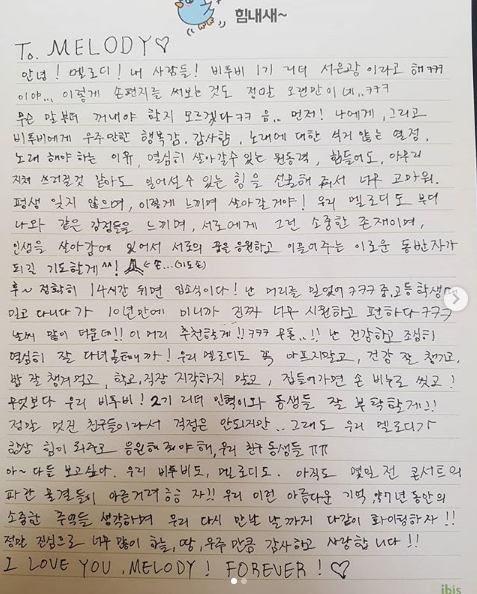 힘내새~
To. MELODY♡
안녕! 멜로디! 내 사람들! 비투비 1기 리더 서은광이라고 해ㅋㅋ
이야... 이렇게 손편지를 써보는 것도 정말 오랜만이네..ㅋㅋㅋ
무슨 말부터 꺼내야 할지 모르겠다ㅋㅋ 음.. 먼저! 나에게, 그리고
비투비에게 우주만한 행복감, 감사함, 노래에 대한 식지 않는 열정,
노래 해야 하는 이유, 열심히 살아갈수 있는 원동력, 힘들어도, 아무리
지쳐 쓰러질것 같아도 일어설수 있는 힘을 선물해 줘서 너무 고마워.
평생 잊지 않으며, 이렇게 느끼며 살아갈거야! 우리 멜로디도 부디
나와 같은 감정들을 느끼며, 서로에게 그런 소중한 존재이며,
인생을 살아감에 있어서 서로의 꿈을 응원하고 이끌어주는 이로운 동반자가
되길 기도할게^^! ← 손...(기도손)
후~ 정확히 14시간 뒤면 입소식이다! 난 머리를 밀었어ㅋㅋㅋ 중,고등학생때
밀고 다니다가 10년만에 미니까 진짜 너무 시원하고 편하다ㅋㅋㅋ
날씨 많이 더운데!! 이 머리 추천할게!!ㅋㅋㅋ 무튼..!! 난 건강하고 조심히
열심히 잘 다녀올테니까! 우리 멜로디도 꼭 아프지말고, 건강 잘 챙기고,
밥 잘 챙겨먹고, 학교,직장 지각하지 말고, 집들어가면 손 비누로 씻고!
무엇보다 우리 비투비! 2기 리더 민혁이와 동생들 잘 부탁할게!!
정말 멋진 친구들이라서 걱정은 안되지만.. 그래도 우리 멜로디가
항상 힘이 되주고 응원해줘야해, 우리 친구 동생들 ㅠㅠ
아~ 다들 보고싶다. 우리 비투비도, 멜로디도. 아직도 몇일 전 콘서트의
파란 물결들이 아른거려 흐흐 자!! 우리 이런 아름다운 기억, 약7년 동안의
소중한 추억들 생각하며 우리 다시 만날 날까지 다같이 화이팅하자!!
정말 진심으로 너무 많이 하늘,땅,우주만큼 감사하고 사랑합니다!!
I LOVE YOU, MELODY! FOREVER!♡
ibis